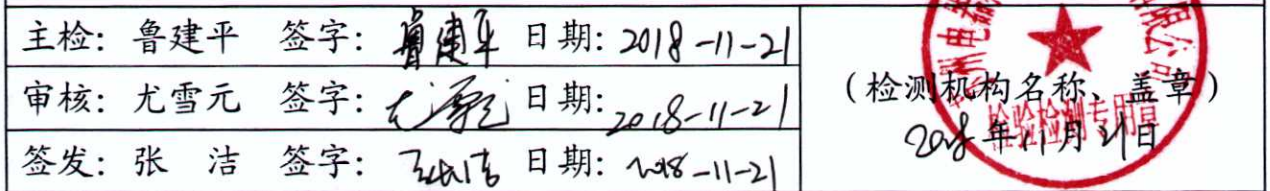 主检：鲁建平 签字：鲁建平 日期：2018-11-21
审核：尤雪元 签字：尤雪元 日期：2018-11-21
签发：张 洁 签字：张洁 日期：2018-11-21
（检测机构名称、盖章）
检验检测专用章
2018年11月21日